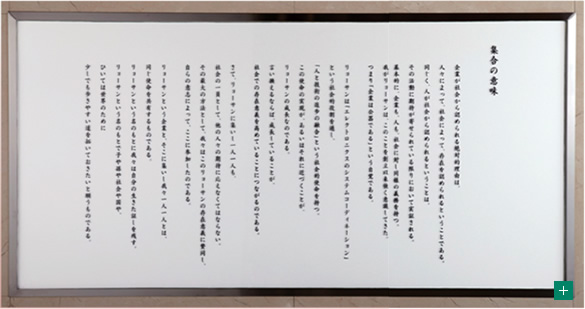 集合の意味
企業が社会から認められる絶対的理由は、
人々によって、社会によって、存在を認められるということである。
同じく、人が社会から認められるということは、
その活動に期待が寄せられている限りにおいて実証される。
基本的に、企業も、人も、社会に対し同様の義務を持つ。
我がリョーサンは、このことを創立以来強く意識してきた。
つまり「企業は公器である」という自覚である。
リョーサンは、「エレクトロニクスのシステムコーディネーション」
という社会的役割を通し、
「人と技術の進歩の融合」という社会的使命を持つ。
この使命の実現が、あるいはそれに近づくことが、
リョーサンの成長なのである。
言い換えるならば、成長していることが、
社会での存在意義を高めていることにつながるのである。
さて、リョーサンに集いし一人一人も、
社会の一員として、他の人々の期待に応えなくてはならない。
その最大の方法として、我々はこのリョーサンの存在意義に賛同し、
自らの意志によって、ここに参加したのである。
リョーサンという企業と、そこに集いし我々一人一人とは、
同じ使命を共有するものである。
リョーサンという名のもとに我々は自分の生きた証しを残す。
リョーサンという名のもとで子や孫や社会や国や、
ひいては世界のために
少しでも歩きやすい道を拓いておきたいと願うものである。